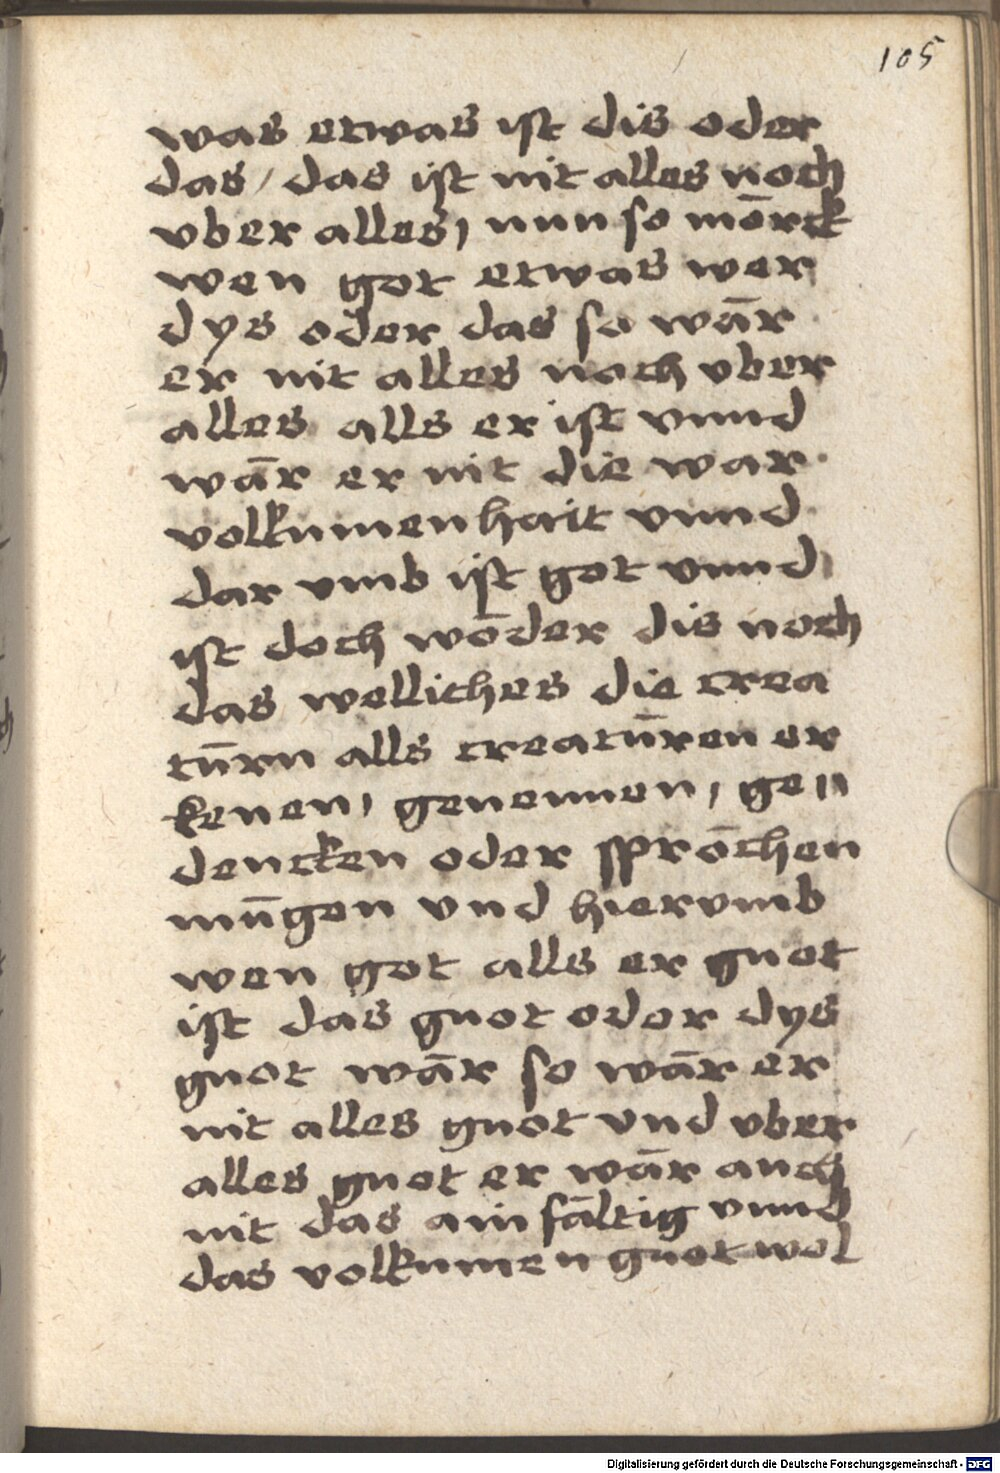 105
was etwas ist dis oder
das / das ist nit alles noch
vber alles, nun so mōrck
wen got etwas wer
dys oder das so wār
er nit alles noch vber
alles alls er ist vnnd
wār er nit die war
volkumenhait vnnd
dar vmb ist got vnnd
ist doch wōder dis noch
das welliches die crea
tūrn alls creatūren er
kenen, genennen, ge
dencken oder sprōchen
mūgen vnd hiervmb
wen got alls er guot
ist das guot oder dys
guot wār so wār er
nit alles guot vnd vber
alles guot er wār auch
nit das ainfāltig vnnd
das volkumen guot wol
Digitalisierung gefördert durch die Deutsche Forschungsgemeinschaft - DFG